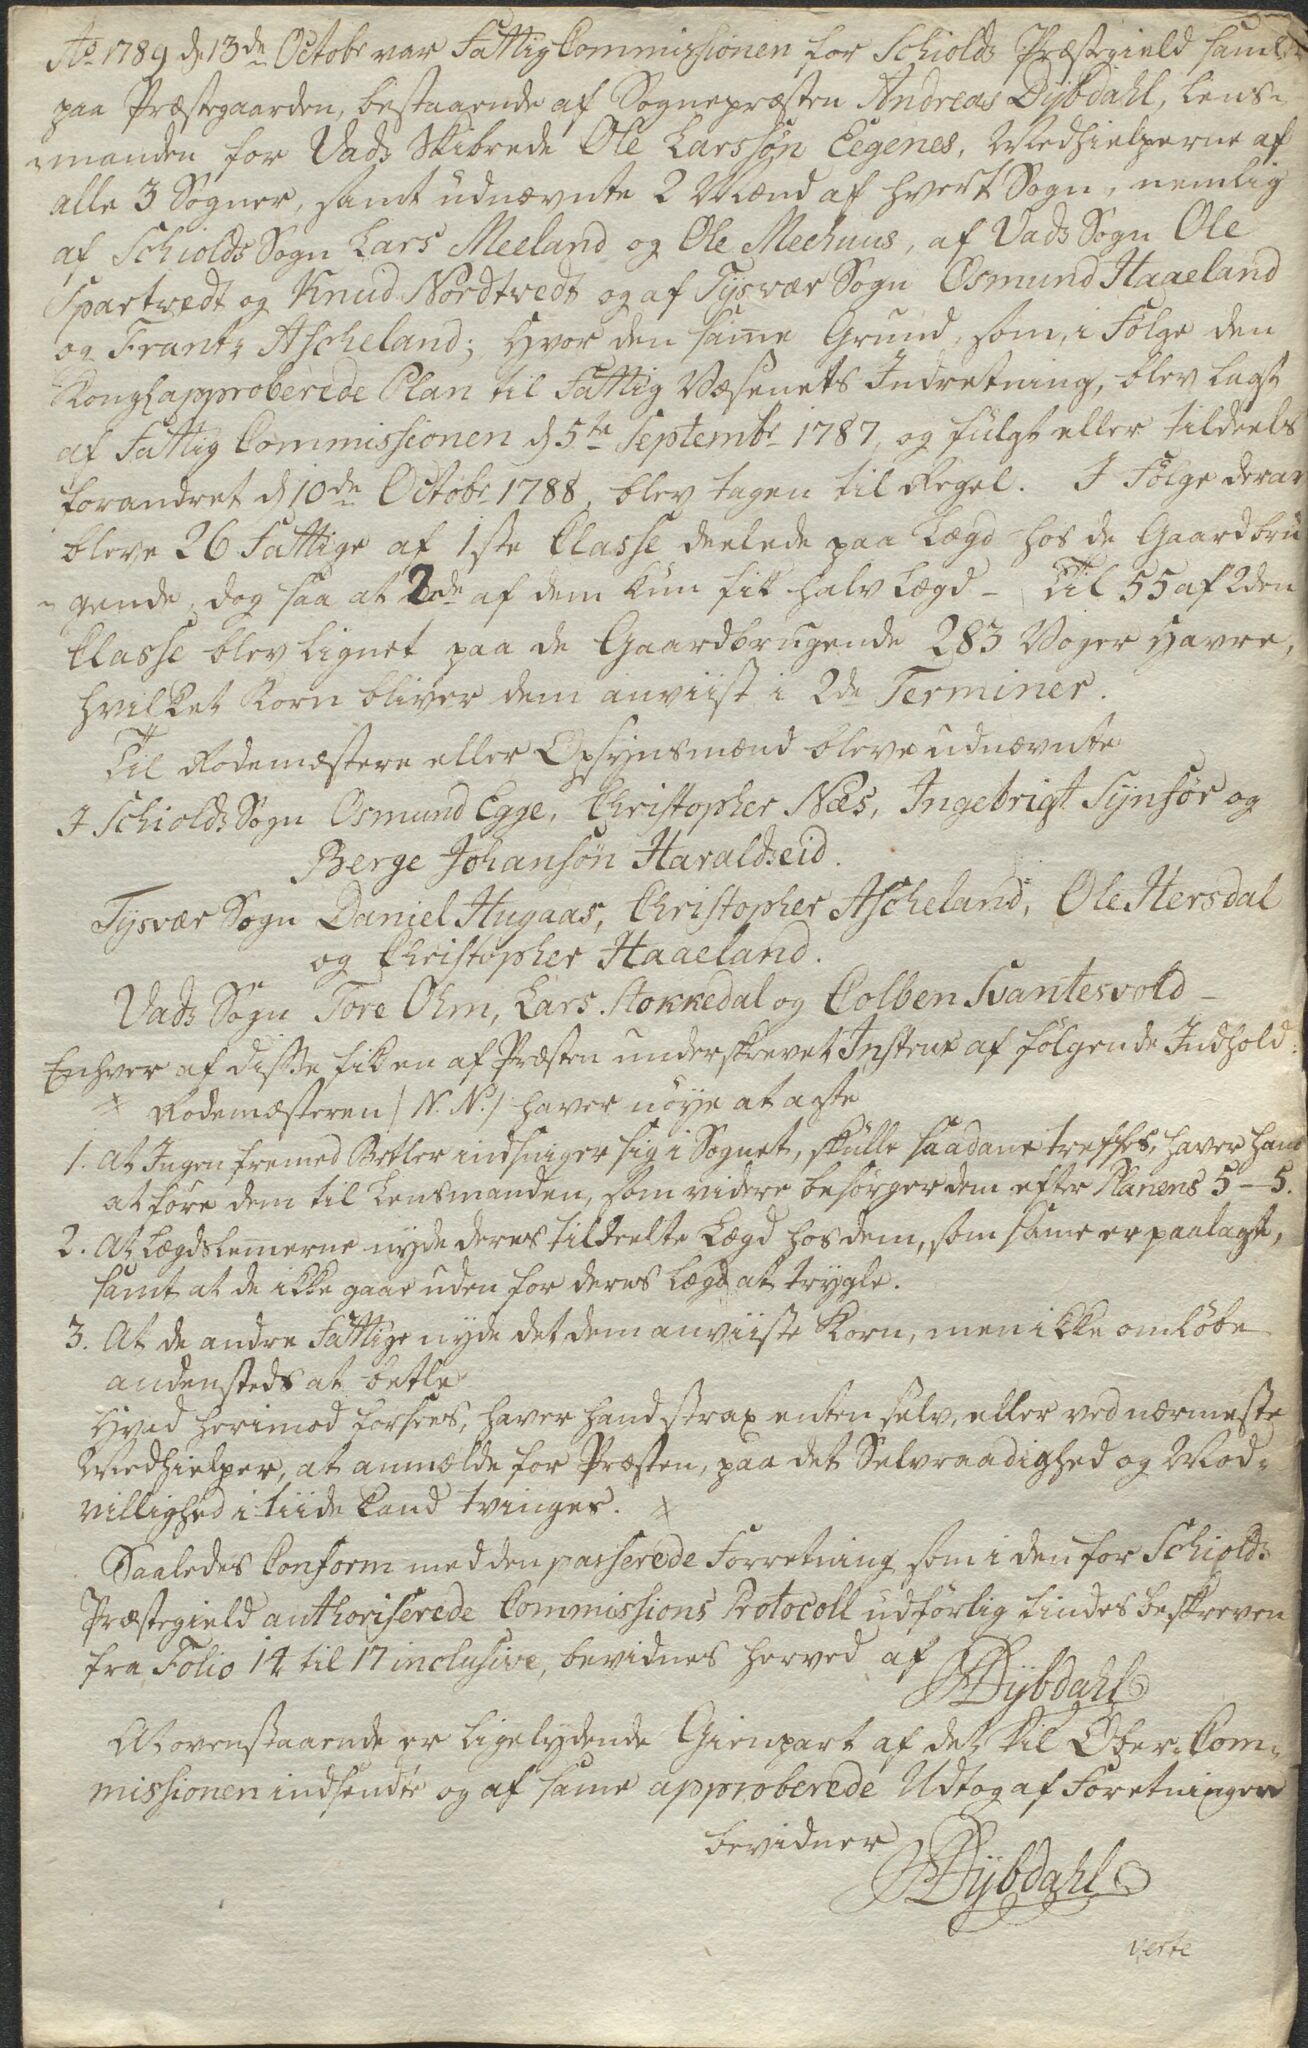 Ao 1789 d 13de Octobr var Fattig Commissionen for Schiolds Præstegield samlet
paa Præstegaarden, bestaaende af Sognepræsten Andreas Dybdahl, Lens-
manden for Vads Skibrede Ole Larssøn Eegenes, Medhielperne af
alle 3 Sogner, samt udnævnte 2 Mænd af hvert Sogn, nemlig
af Schiolds Sogn Lars Meeland og Ole Meehuus, af Vads Sogn Ole
Spartvedt og Knud Nordtvedt og af Tysvær Sogn Osmund Haaeland
og Frantz Ascheland; hvor den same Grund, som, i Følge den
Kongl approberede Plan til Fattig Væsenets Indretning, blev lagt
af Fattig Commissionen d 5te Septembr 1787, og fulgt eller tildeels
forandret d 10de Octobr 1788, blev tagen til Regel. I Følge deraf
bleve 26 Fattige af 1ste Classe deelede paa Lægd hos de Gaardbru
gende, dog saa at 2de af dem kun fik halv Lægd - Til 55 af 2den
Classe blev lignet paa de Gaardbrugende 283 Voger Havre,
hvilket Korn bliver dem anviist i 2de Terminer.
Til Rodemestere eller Opsynsmænd bleve udnævnte
I Schiolds Sogn Osmund Egge, Christopher Næs, Ingebrigt Synfør og
Berge Johansøn Haraldseid.
Tysvær Sogn Daniel Hugaas, Christopher Ascheland, Ole Hersdal
og Christopher Haaeland.
Vads Sogn Tore Ohm, Lars Stokkedal og Colben Svantesvold -
Enhver af disse fik en af Præsten underskrevet Instrux af følgende Indhold:
Rodemesteren / N. N. / haver nøye at agte
1. At Ingen fremmed Betler indsniger sig i Sognet, skulle saadane treffes, haver hand
at føre dem til Lensmanden, som videre besørger dem efter Planens 5 - 5.
2. At Lægdslemerne nyde deres tildeelte Lægd hos dem, som same er paalagt,
samt at de ikke gaae uden for deres Lægd at trygle.
3. At de andre Fattige nyde det dem anviiste Korn, men ikke omløbe
andensteds at betle
Hvad herimod forsees, haver hand strax enten selv, eller ved nærmeste
Medhielper, at anmælde for Præsten, paa det Selvraadighed og Mod-
villighed i tiide kand tvinges.
Saaledes Conform med den passerede Forretning som i den for Schiolds
Præstegield authoriserede Commissions Protocoll udførlig findes beskreven
fra Folio 14 til 17 inclusive, bevidnes herved af
ADybdahl
At ovenstaaende er ligelydende Gienpart af det til Ober-Com-
missionen indsendte og af same approberede Udtog af Forretningen
bevidner
ADybdahl
verte